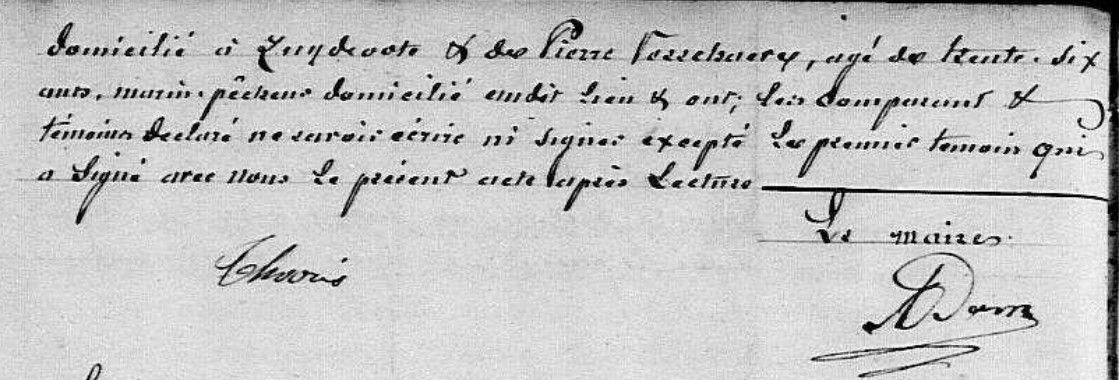 domicilié à Zuydcoote & de Pierre Vesschaere, agé de trente-six
ans, marin-pêcheur domicilié audit Lieu & ont, les comparant &
témoins declaré ne savoir écrire ni signer excepté le premier temoin qui
a Signé avec nous Le présent acte après Lecture
Le maire
Thooris